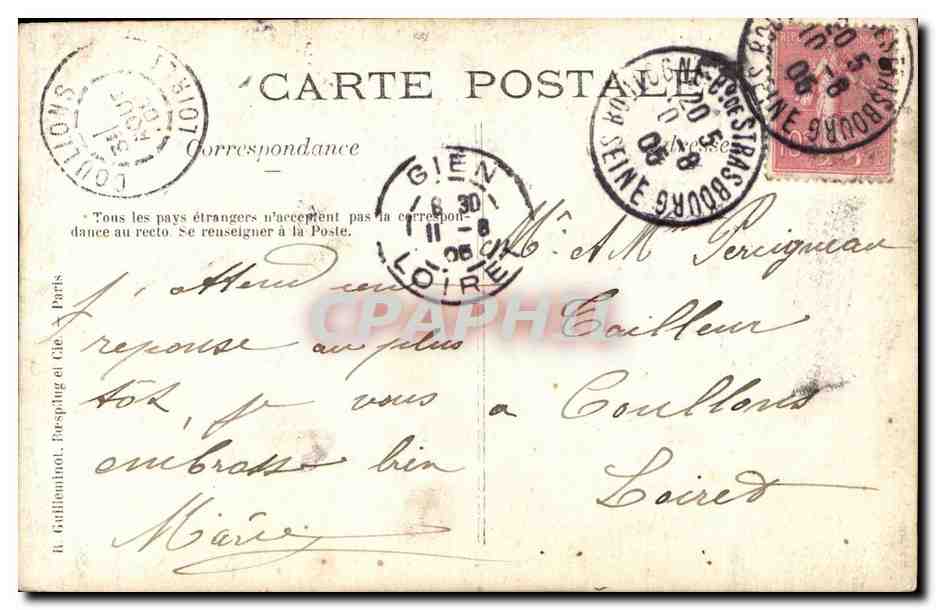 CARTE POSTALE
Correspondance
Adresse
* Tous les pays étrangers n'acceptent pas la correspon-
dance au recto. Se renseigner à la Poste.
R. Guilleminot, Bœspflug et Cie. Paris
COULLONS LOIRET
GIEN
8 30
11 - 8
06
LOIRET
BOULOGNE-Bd DE STRASBOURG
20 5
10 - 8
06
SEINE
STRASBOURG
20 5
10 - 8
06
SEINE
CPAPHIL
Mr & Me Pervigneau
Tailleur
a Coullons
Loiret
j'attend une
reponse au plus
tôt, je vous
embrasse bien
Marie